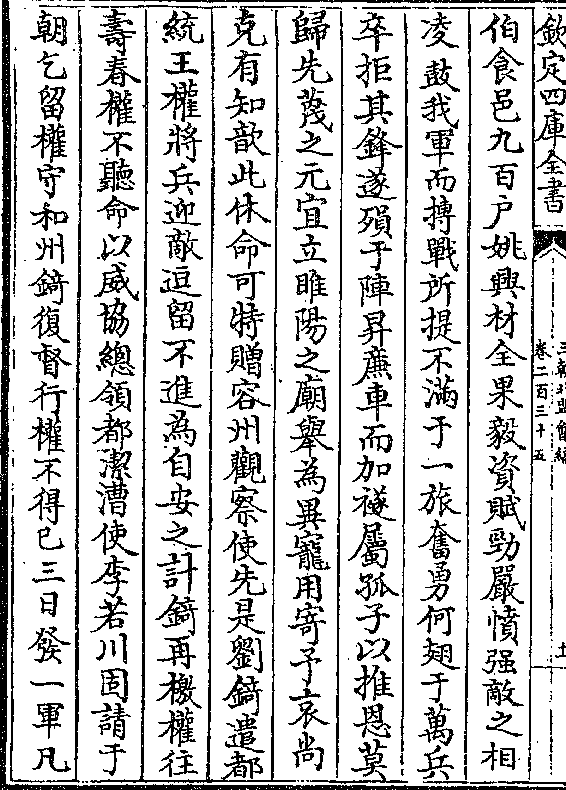 欽定四庫全書
卷二百三十五
伯食邑九百户姚興材全果毅資賦勁嚴憤强敵之相
凌鼓我軍而摶戰所提不滿于一旅奮勇何翅于萬兵
卒拒其鋒遂殞于陣昇廡車而加襚屬孤子以推恩莫
歸先蔑之元宜立睢陽之廟舉為異寵用寄予哀尚
克有知歆此休命可特贈容州觀察使先是劉錡遣都
統王權將兵迎敵逗留不進為自安之計錡再檄權往
壽春權不聽命以威協總領都潔漕使李若川固請于
朝乞留權守和州錡復督行權不得已三日發一軍凡